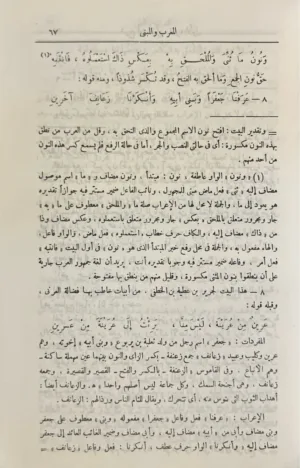 المعرب والمبنى ٦٧
وَنُونُ مَا ثُنِّيَ وَالْمُلْحَقِ بِهْ بِعَكْسِ ذَاكَ اسْتَعْمَلُوهُ ، فَانْتَبِهْ (١)
حَقُّ نون الجمع وما ألحق به الفتحُ ، وقد تُكْسَرُ شُذُوذاً ، ومنه قوله :
٨ — عَرَفْنَا جَعْفَراً وَبَنِي أَبِيهِ وَأَنْكَرْنَا زَعَانِفَ آخَرِينِ
= وتقدير البيت : افتح نون الاسم المجموع والذى التحق به ، وقل من العرب من نطق
بهذه النون مكسورة : أى فى حالتى النصب والجر ، أما فى حالة الرفع فلم يسمع كسر هذه النون
من أحد منهم .
(١) « ونون » الواو عاطفة ، نون : مبتدأ ، ونون مضاف و « ما » اسم موصول
مضاف إليه « ثنى » فعل ماض مبنى للمجهول ، ونائب الفاعل ضمير مستتر فيه جوازاً تقديره
هو يعود إلى ما ، والجملة لا محل لها من الإعراب صلة ما « والملحق » معطوف على ما « به »
جار ومجرور متعلق بالملحق « بعكس » جار ومجرور متعلق باستعملوه ، وعكس مضاف وذا
من « ذاك » مضاف إليه ، والكاف حرف خطاب « استعملوه » فعل ماض ، والواو فاعل ،
والهاء مفعول به ، والجملة فى محل رفع خبر المبتدأ الذى هو نون ، فى أول البيت « فانتبه »
فعل أمر ، وفاعله ضمير مستتر فيه وجوبا تقديره أنت . يريد أن لغة جمهور العرب جارية
على أن ينطقوا بنون المثنى مكسورة ، وقليل منهم من ينطق بها مفتوحة .
٨ — هذا البيت لجرير بن عطية بن الخطفى ، من أبيات خاطب بها فضالة العرنى ،
وقبله قوله :
عَرِينٌ مِنْ عُرَيْنَةَ ، لَيْسَ مِنَّا ، بَرِئْتُ إِلَى عُرَيْنَةَ مِنْ عَرِينِ
المفردات : « جعفر » اسم رجل من ولد ثعلبة بن يربوع « وبنى أبيه » إخوته ، وهم
عرين وكليب وعبيد « زعانف » جمع زعنفة — بكسر الزاى والنون بينهما عين مهملة ساكنة —
وهم الأتباع ، وفى القاموس « الزعنفة — بالكسر والفتح — القصير والقصيرة ، وجمعه
زعانف ، وهى أجنحة السمك ، وكل جماعة ليس أصلهم واحدا » اهـ . والزعانف أيضاً :
أهداب الثوب التى تنوس منه ، أى تتحرك ، ويقال للئام الناس ورذالهم : الزعانف .
الإعراب : « عرفنا » فعل وفاعل « جعفرا » مفعوله « وبنى » معطوف على جعفر
وبنى مضاف وأبى من « أبيه » مضاف إليه ، وأبى مضاف وضمير الغائب العائد إلى جعفر
مضاف إليه « وأنكرنا » الواو حرف عطف ، أنكرنا : فعل وفاعل « زعانف » =